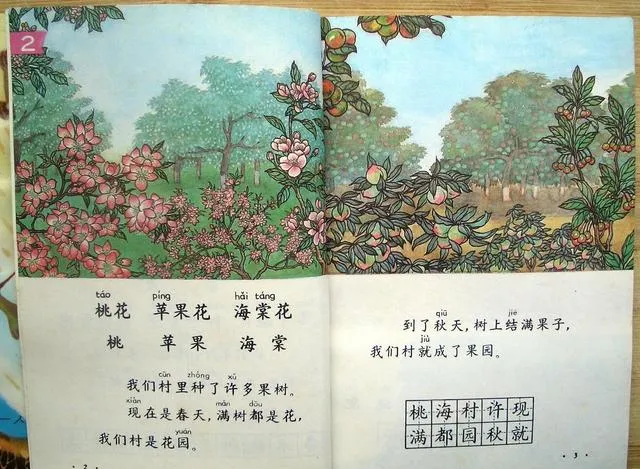 2
táo píng hǎi táng
桃花 苹果花 海棠花
桃 苹果 海棠
cūn zhòng xǔ
我们村里种了许多果树。
xiàn mǎn dōu
现在是春天,满树都是花,
yuán
我们村是花园。
·2·
qiū jiē
到了秋天,树上结满果子,
jiù
我们村就成了果园。
桃海村许现
满都园秋就
·3·
一人